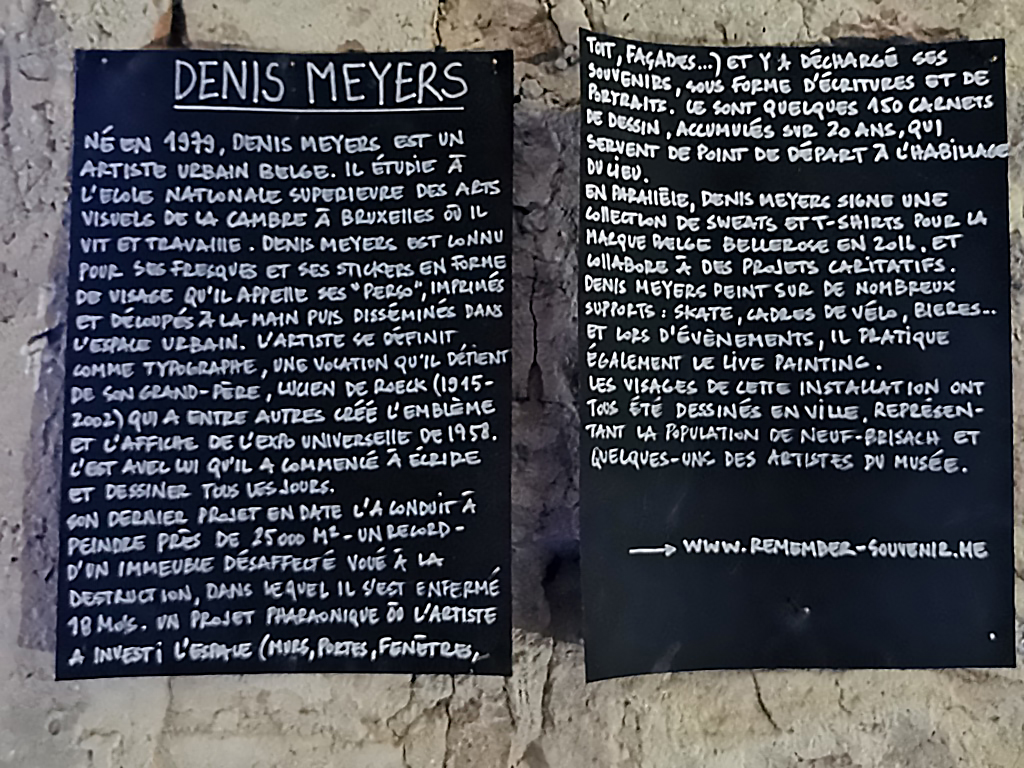 DENIS MEYERS
NÉ EN 1979, DENIS MEYERS EST UN
ARTISTE URBAIN BELGE. IL ÉTUDIE À
L'ECOLE NATIONALE SUPERIEURE DES ARTS
VISUELS DE LA CAMBRE À BRUXELLES OÙ IL
VIT ET TRAVAILLE. DENIS MEYERS EST CONNU
POUR SES FRESQUES ET SES STICKERS EN FORME
DE VISAGE QU'IL APPELLE SES "PERSO", IMPRIMÉS
ET DÉCOUPÉS À LA MAIN PUIS DISSÉMINÉS DANS
L'ESPACE URBAIN. L'ARTISTE SE DÉFINIT
COMME TYPOGRAPHE, UNE VOCATION QU'IL DÉTIENT
DE SON GRAND-PÈRE, LUCIEN DE ROECK (1915-
2002) QUI A ENTRE AUTRES CRÉÉ L'EMBLÈME
ET L'AFFICHE DE L'EXPO UNIVERSELLE DE 1958.
C'EST AVEC LUI QU'IL A COMMENCÉ À ÉCRIRE
ET DESSINER TOUS LES JOURS.
SON DERNIER PROJET EN DATE L'A CONDUIT À
PEINDRE PRÈS DE 25000 M² - UN RECORD -
D'UN IMMEUBLE DÉSAFFECTÉ VOUÉ À LA
DESTRUCTION, DANS LEQUEL IL S'EST ENFERMÉ
18 MOIS. UN PROJET PHARAONIQUE OÙ L'ARTISTE
A INVESTI L'ESPACE (MURS, PORTES, FENÊTRES,
TOIT, FAÇADES...) ET Y A DÉCHARGÉ SES
SOUVENIRS, SOUS FORME D'ÉCRITURES ET DE
PORTRAITS. CE SONT QUELQUES 150 CARNETS
DE DESSIN, ACCUMULÉS SUR 20 ANS, QUI
SERVENT DE POINT DE DÉPART À L'HABILLAGE
DU LIEU.
EN PARALLÈLE, DENIS MEYERS SIGNE UNE
COLLECTION DE SWEATS ET T-SHIRTS POUR LA
MARQUE BELGE BELLEROSE EN 2016, ET
COLLABORE À DES PROJETS CARITATIFS.
DENIS MEYERS PEINT SUR DE NOMBREUX
SUPPORTS : SKATE, CADRES DE VÉLO, BIERES...
ET LORS D'ÉVÈNEMENTS, IL PRATIQUE
ÉGALEMENT LE LIVE PAINTING.
LES VISAGES DE CETTE INSTALLATION ONT
TOUS ÉTÉ DESSINÉS EN VILLE, REPRÉSEN-
TANT LA POPULATION DE NEUF-BRISACH ET
QUELQUES-UNS DES ARTISTES DU MUSÉE.
→ WWW.REMEMBER-SOUVENIR.ME